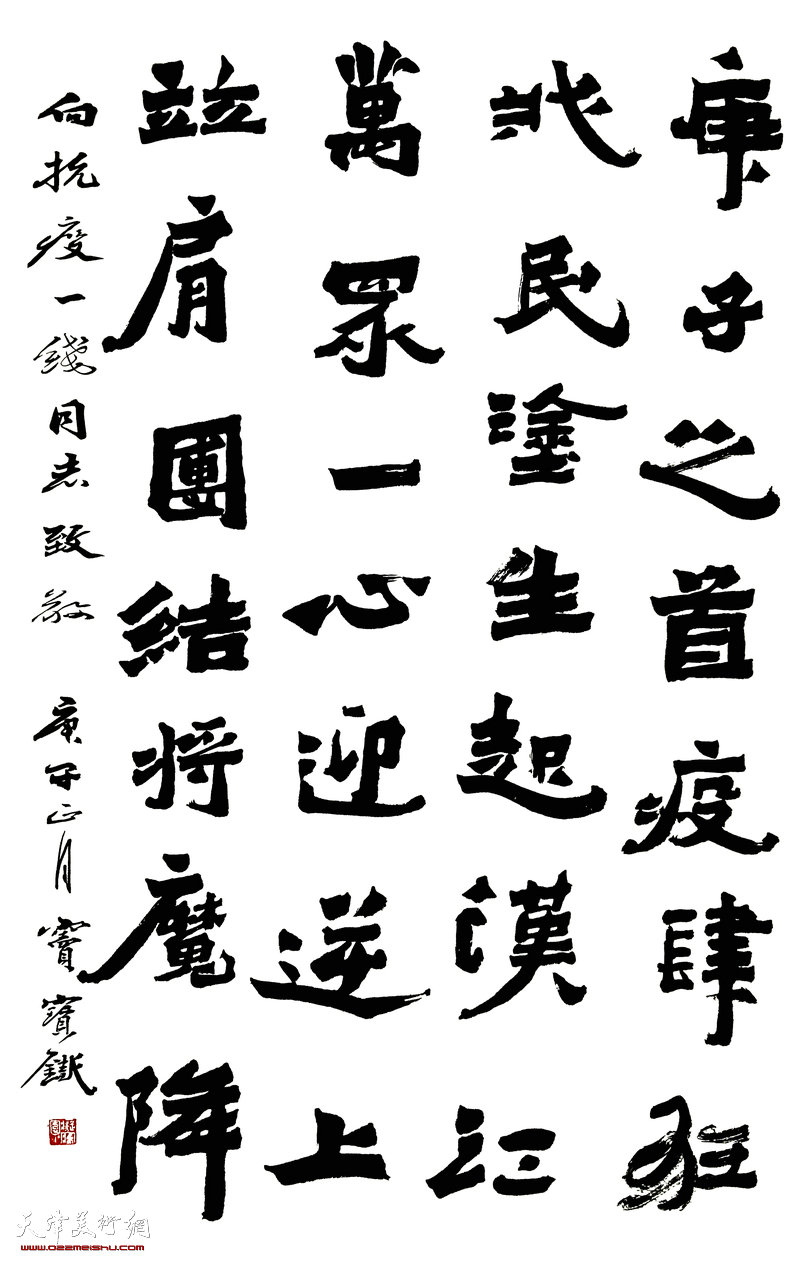 庚子之首疫肆狂
兆民塗生起漢江
萬眾一心迎逆上
竝肩團結将魔降
向抗疫一綫同志致敬 庚子正月 竇寶鐵
天津美術網
www.022meishu.com